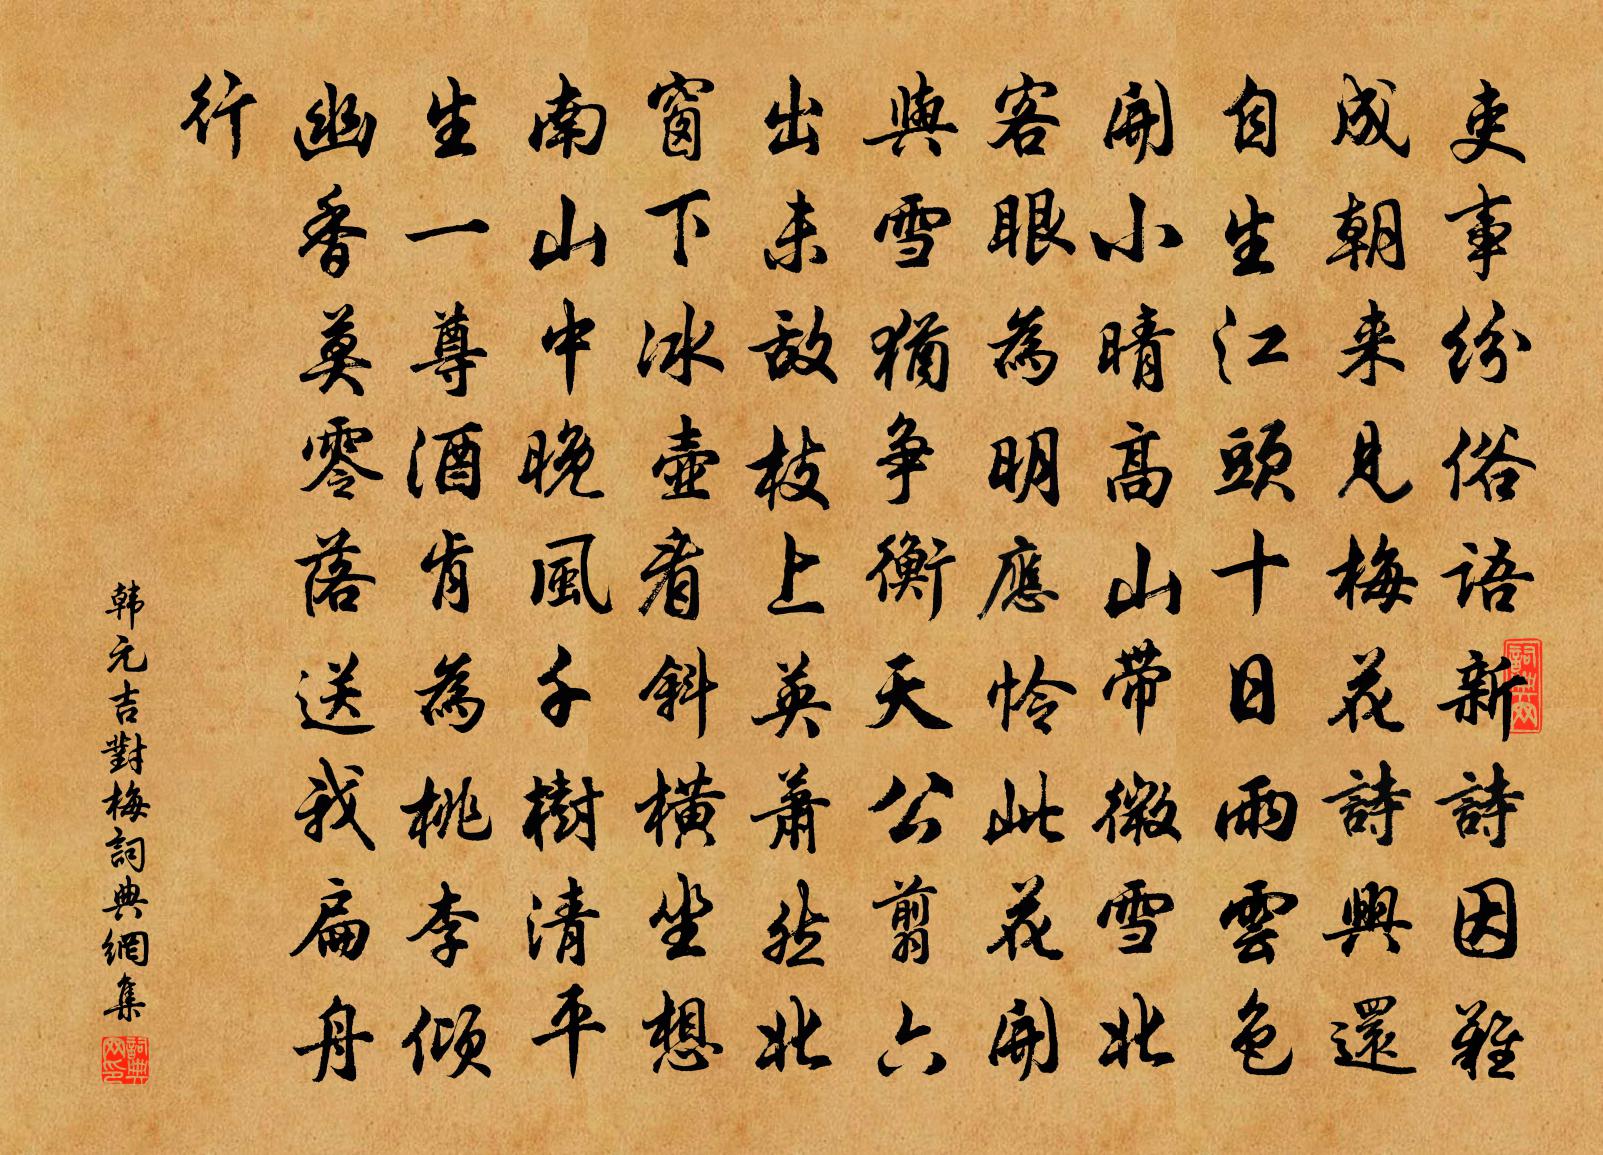 吏事紛俗語新詩因難
成朝来見梅花詩興還
自生江頭十日雨雲色
開小晴高山帶微雪北
客眼為明應怜此花開
與雪猶爭衡天公翦六
出未敌枝上英萧然北
窗下冰壺看斜橫坐想
南山中晚風千樹清平
生一尊酒肯為桃李傾
幽香莫零落送我扁舟
行
韩元吉對梅詞典網集
詞典网
詞典网印